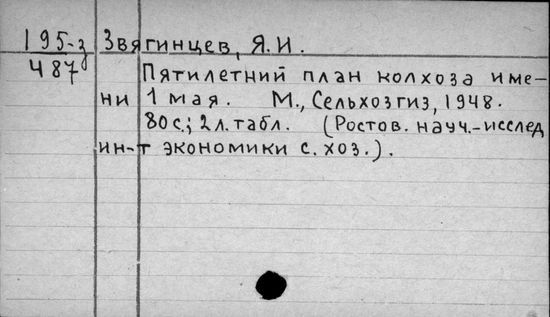 195-з Звягинцев, Я.И.
487 Пятилетний план колхоза име-
ни 1 мая. М., Сельхозгиз, 1948.
80 с.; 2 л. табл. (Ростов. науч.-исслед
ин-т экономики с. хоз.).